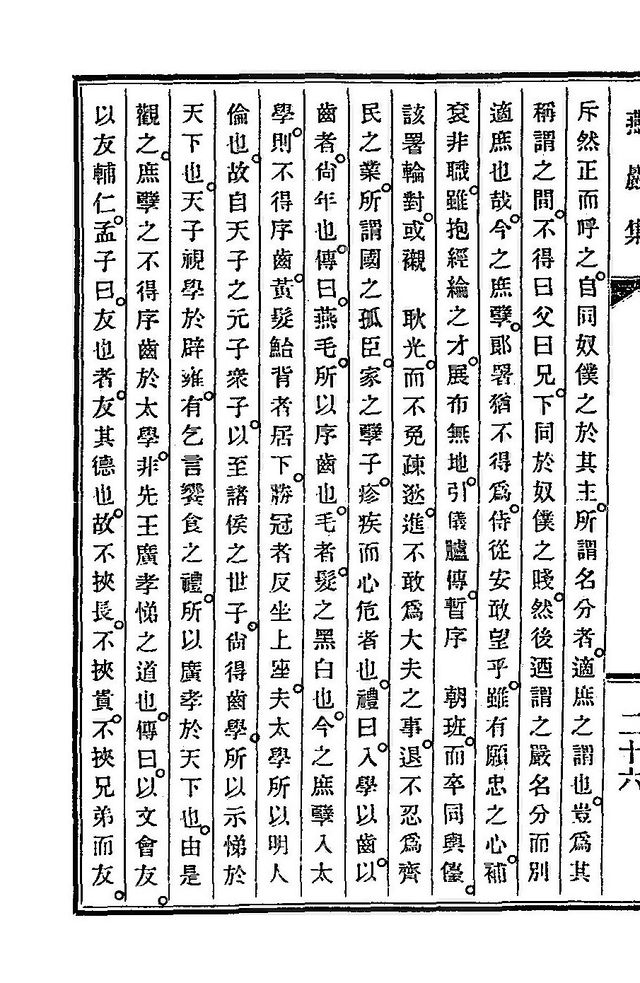 燕巖集
二十六
斥然正而呼之。自同奴僕之於其主。所謂名分者。適庶之謂也。豈爲其
稱謂之間。不得曰父曰兄。下同於奴僕之賤。然後迺謂之嚴名分而別
適庶也哉。今之庶孽。郞署猶不得爲侍從。安敢望乎。雖有願忠之心。補
袞非職。雖抱經綸之才。展布無地。引儀臚傳。暫序 朝班。而卒同輿儓。
該署輪對。或襯 耿光。而不免疎逖。進不敢爲大夫之事。退不忍爲齊
民之業。所謂國之孤臣。家之孽子。疹疾而心危者也。禮曰。入學以齒。以
齒者。尙年也。傳曰。燕毛。所以序齒也。毛者。髮之黑白也。今之庶孽入太
學。則不得序齒。黃髮鮐背者居下。勝冠者反坐上座。夫太學所以明人
倫也。故自天子之元子衆子。以至諸侯之世子。尙得齒學。所以示悌於
天下也。天子視學於辟雍。有乞言饗食之禮。所以廣孝於天下也。由是
觀之。庶孽之不得序齒於太學。非先王廣孝悌之道也。傳曰。以文會友。
以友輔仁。孟子曰。友也者。友其德也。故不挾長。不挾貴。不挾兄弟而友。